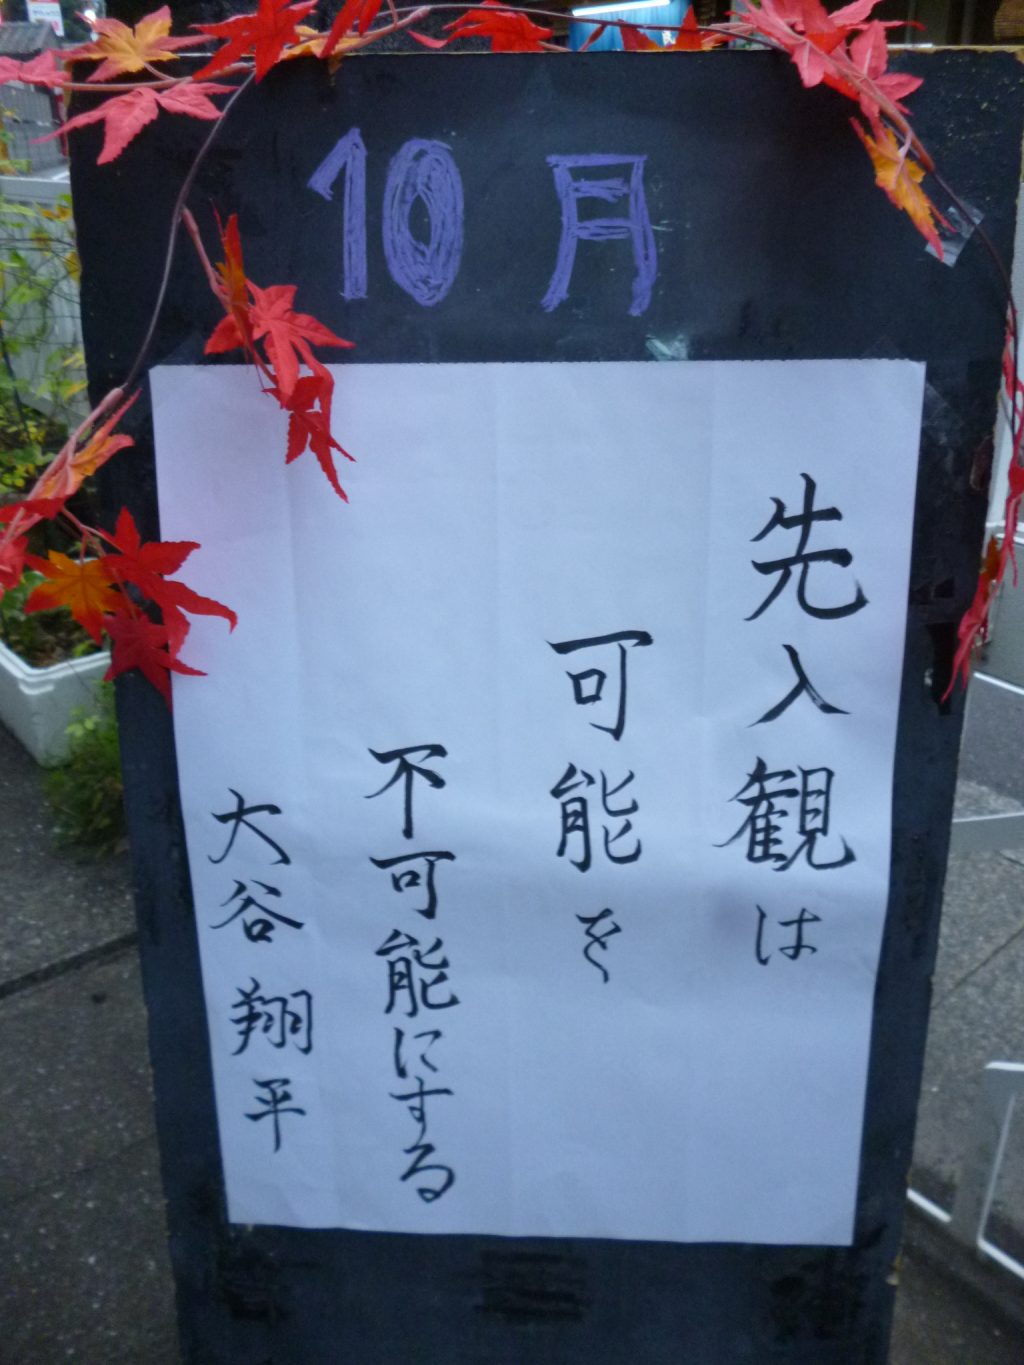 10月
先入観は
可能を
不可能にする
大谷翔平